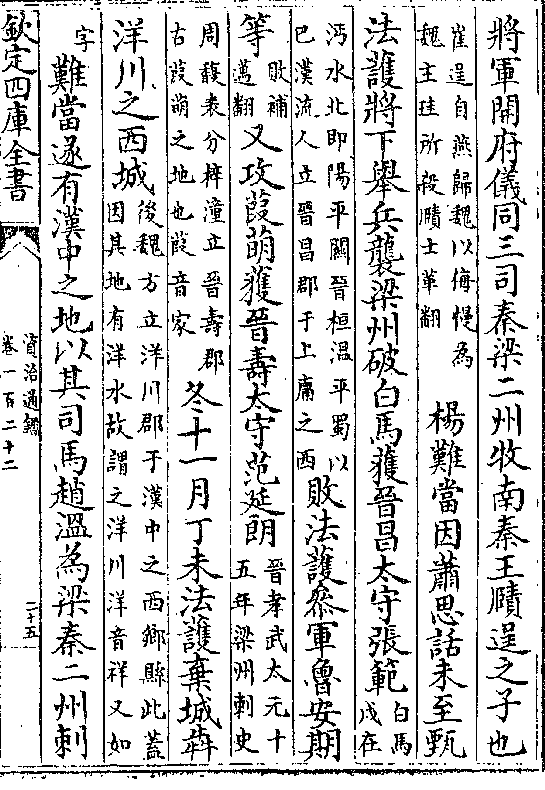 將軍開府儀同三司秦梁二州牧南秦王賾逞之子也
崔逞自燕歸魏以侮慢為
魏主珪所殺賾士革翻
楊難當因蕭思話未至甄
法護將下舉兵襲梁州破白馬獲晉昌太守張範
白馬
戍在
沔水北即陽平關晉桓溫平蜀以
巴漢流人立晉昌郡于上庸之西
敗法護參軍魯安期
等
敗補
邁翻
又攻葭萌獲晉壽太守范延朗
晉孝武太元十
五年梁州刺史
周馥表分梓潼立晉壽郡
古葭萌之地也葭音家
冬十一月丁未法護棄城犇
洋川之西城
後魏方立洋川郡于漢中之西鄉縣此蓋
因其地有洋水故謂之洋川洋音祥又如
字
難當遂有漢中之地以其司馬趙溫為梁秦二州刺
欽定四庫全書
資治通鑑
卷一百二十二
二十五